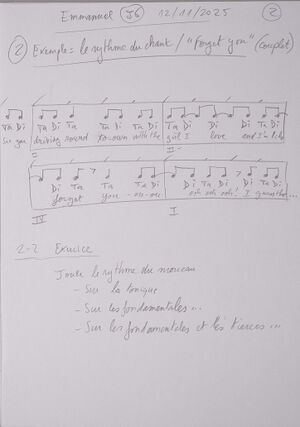 Emmanuel J6 12/11/2025 2
2 Exemple = le rythme du chant / "Forget you" (Couplet)
Ta Di Ta Di Ta Ta Di Ta Di Ta Di Ta Di Ta Di
See you driving round town with the girl I love and I'm like
II
Di Ta Ta Ta Di Di Ta Di Di Ta Di
forget you - ou - ou ooh ooh ooh! I guess the...
IV I
2-2 Exercice
Jouer le rythme du morceau
- Sur la tonique
- Sur les fondamentales...
- Sur les fondamentales et les tierces...